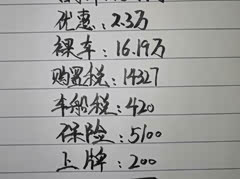 优惠：2.3万
裸车：16.19万
购置税：14327
车船税：420
保险：5100
上牌：200